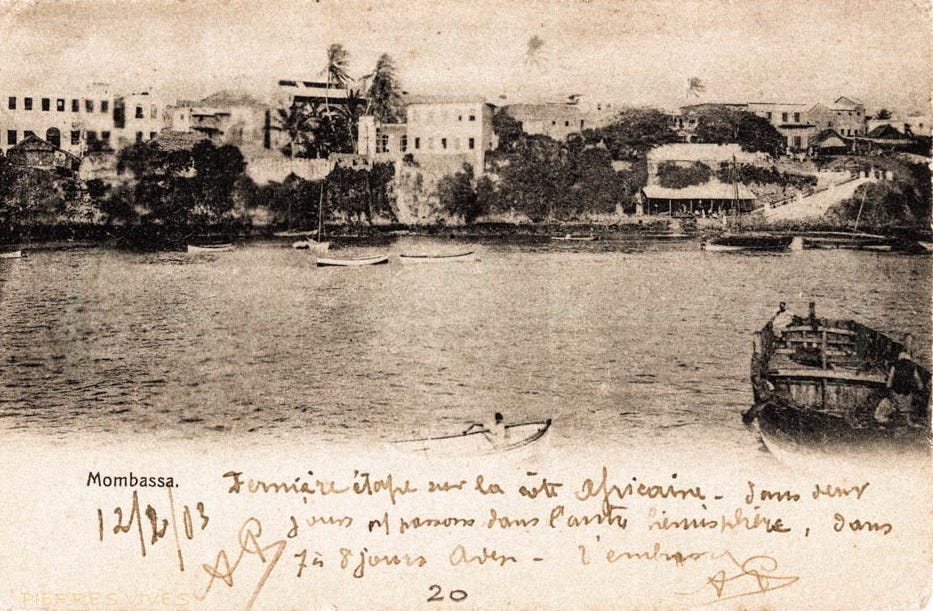 Mombassa.
Dernière étape sur la côte Africaine - dans deux
12/2/03 jours passons dans l'autre hémisphère, dans
7 à 8 jours Aden - t'embrasse
AP
AP
20
PIERRES VIVES